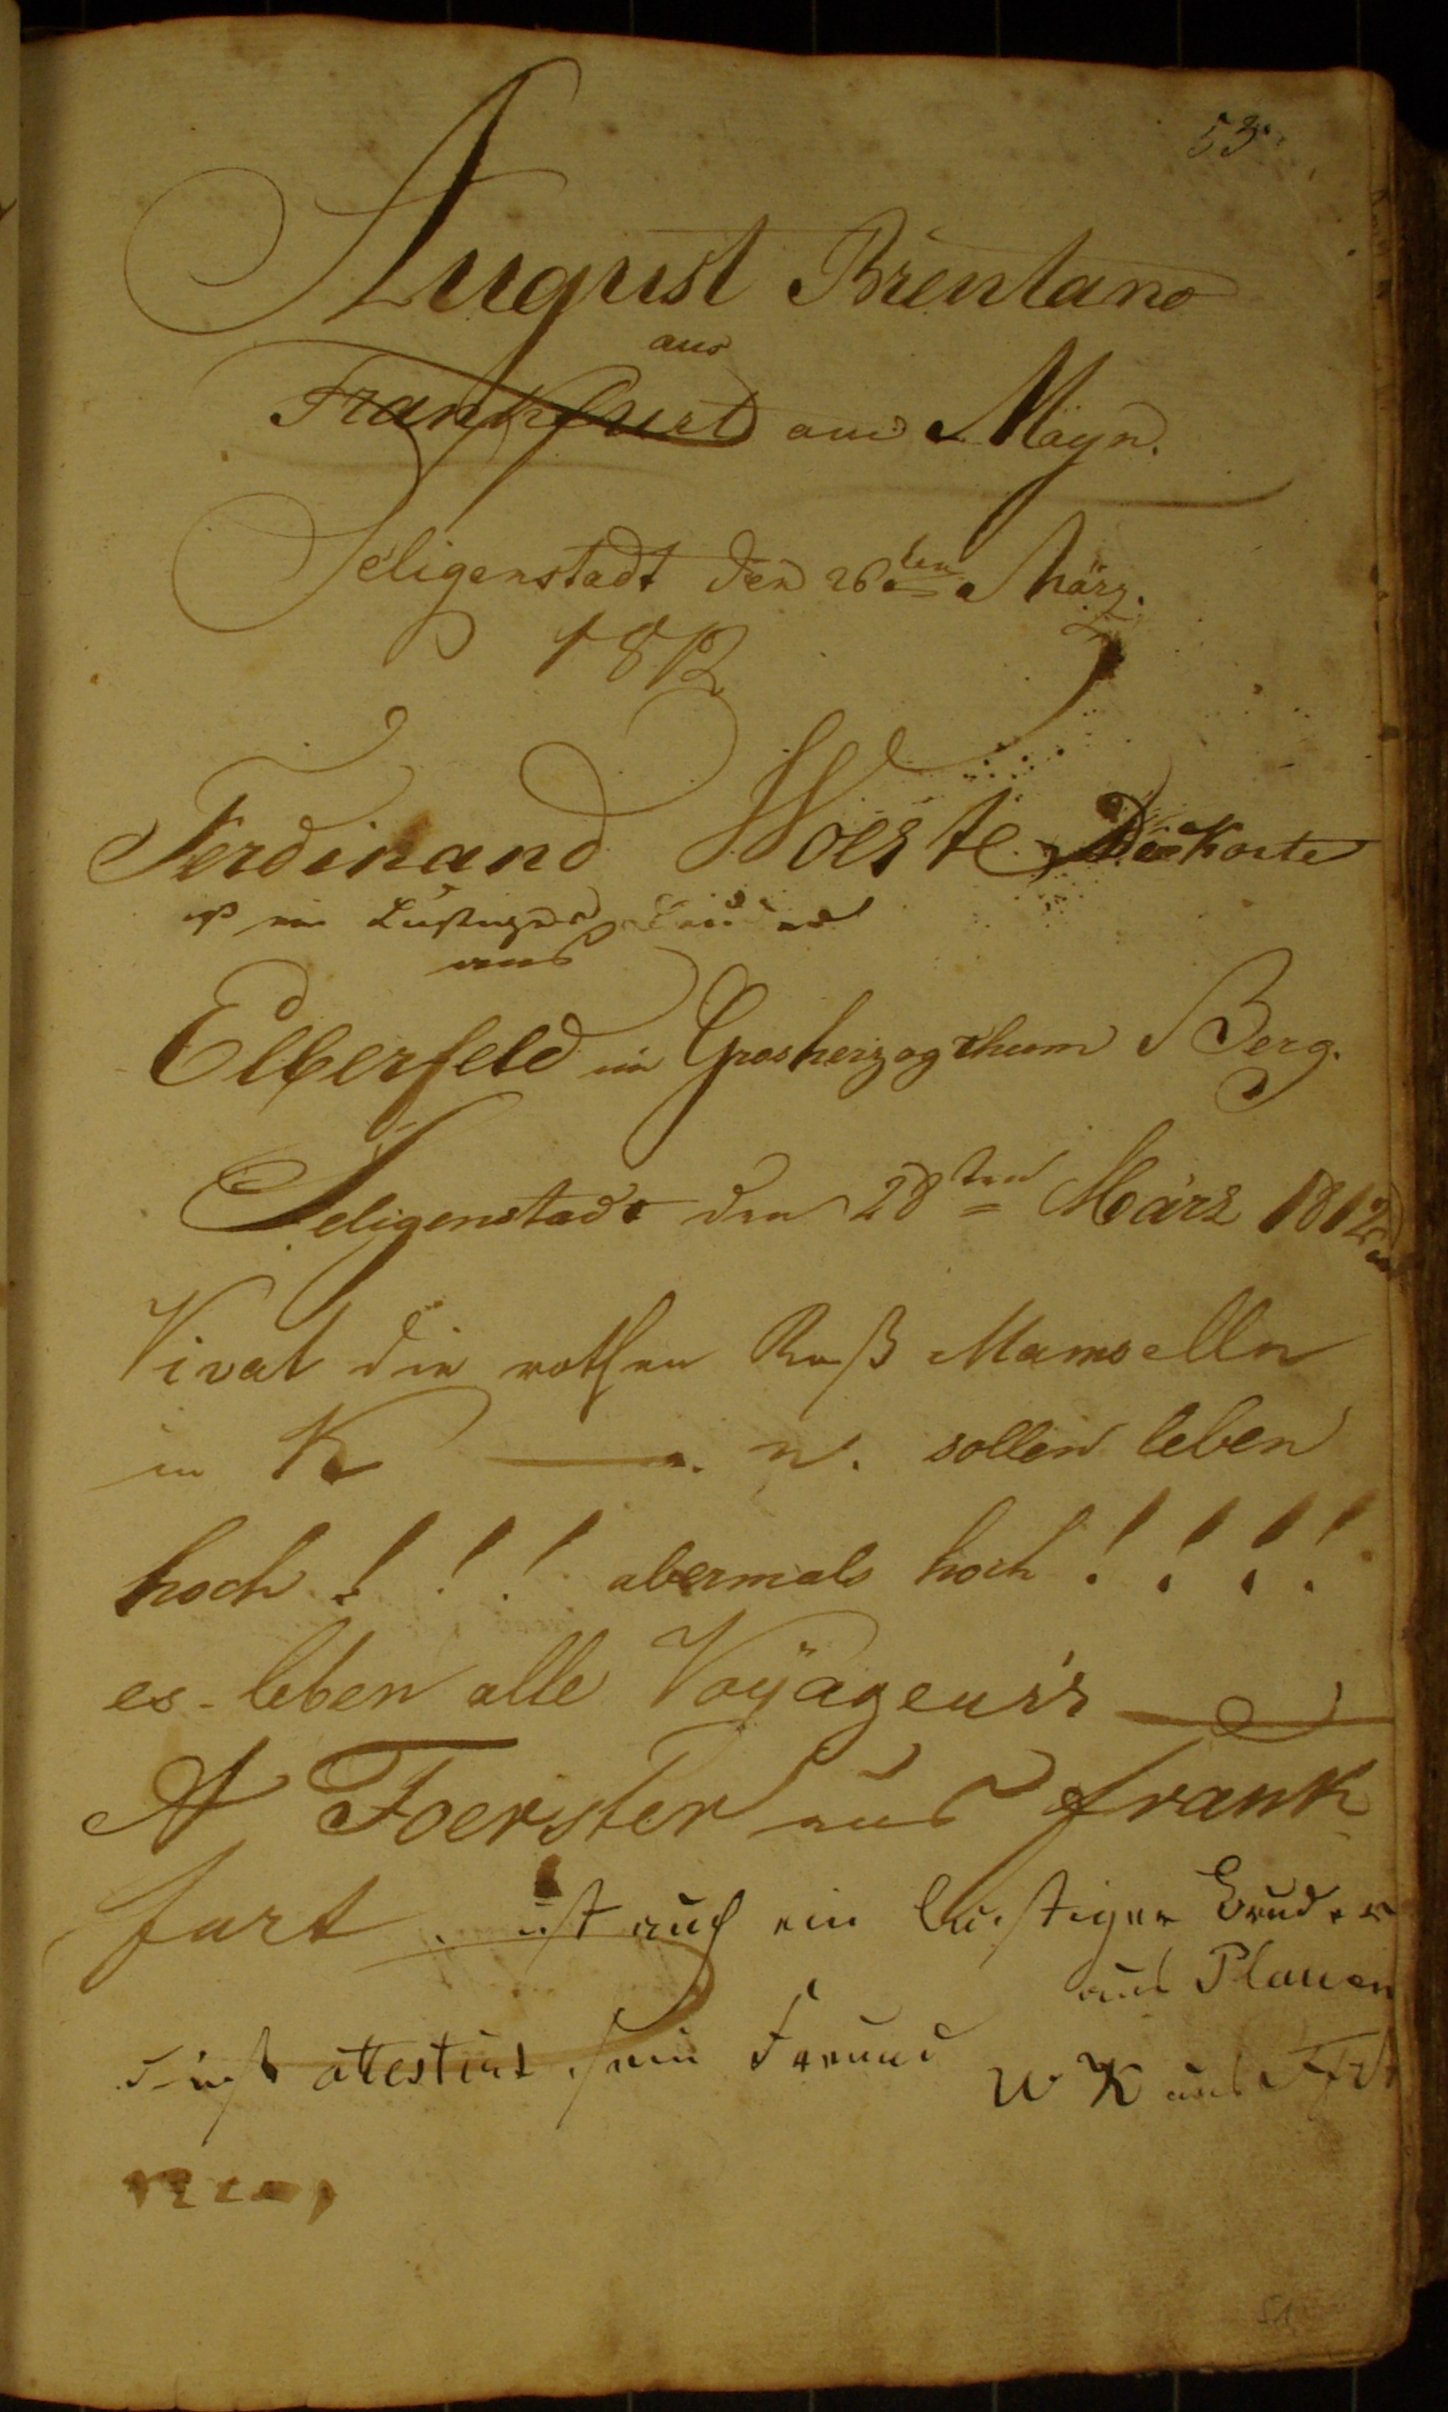 53.
August Brentano
aus
Frankfurt am Mayn.
Seligenstadt den 26ten März.
1812
Ferdinand Woeste
ist ein Lustiger Bruder
aus
Elberfeld im Grosherzogthum Berg.
Seligenstadt den 28ten März 1812
Vivat die rothen Roß Mamselln
in K n. sollen leben
hoch ! ! ! abermals hoch ! ! ! !
es leben alle Voÿageurs
A Foerster aus Frank
furt ist auch ein lustiger Bruder
aus Plauen
dies attestirt sein Freund W K aus Ffrt
51